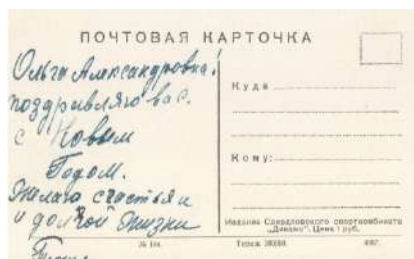 ПОЧТОВАЯ КАРТОЧКА
Ольга Александровна!
поздравляю вас.
с Новым
Годом.
Желаю счастья и
и долгой жизни
Куда
Кому:
Издание Свердловского спорткомбината
„Динамо“. Цена 1 руб.
Тираж